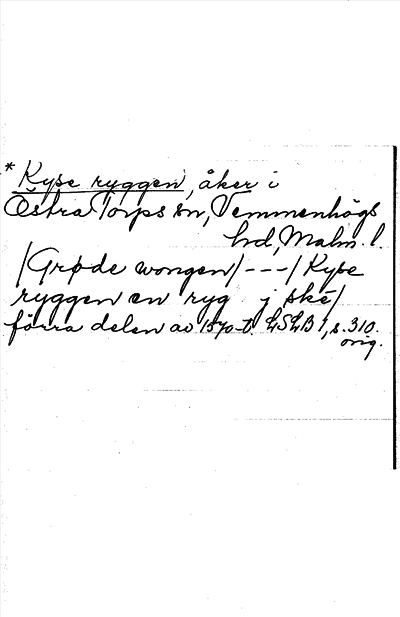 * Kyse ryggen, åker i
Östra Torps sn, Vemmenhögs
hd, Malm. l.
/Grøde wongen/ --- / Kyse
ryggen en ryg j ské/
förra delen av 1570-t. LSLB 1, s. 310.
orig.